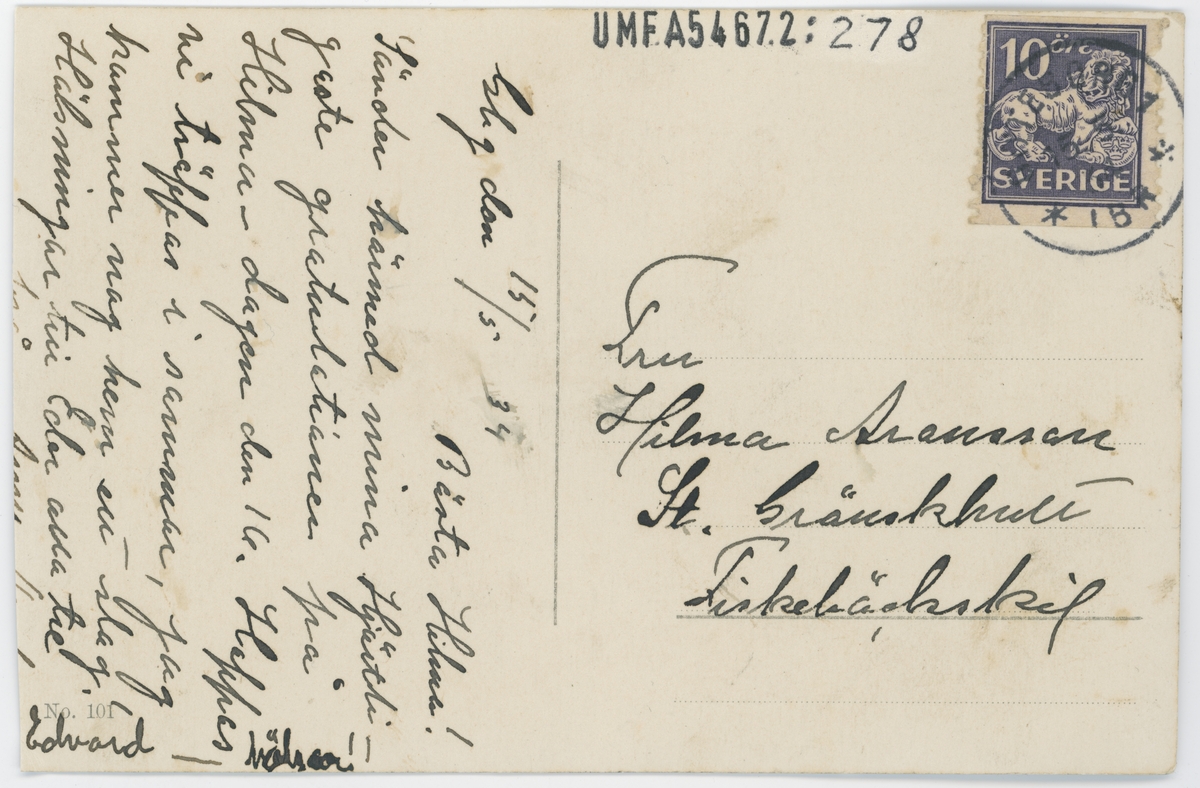 UMFA54672:278
10 öre
SVERIGE
Gbg den 15/5 34
Bästa Hilma!
Sänder härmed mina Hjärtli-
gaste gratulationer på
Hilma-dagen den 16. Hoppas
vi träffas i sommar, jag
kommer nog hem en slag,
Hälsningar till Eder alla tre
Edvard
Fru
Hilma Aronsson
St. Grönskhult
Fiskebäckskil
No. 101